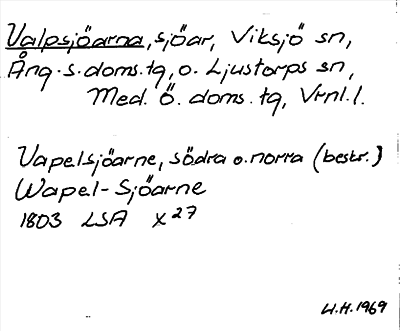 Valpsjöarna, sjöar, Viksjö sn,
Ång. s. doms. tg, o. Ljustorps sn,
Med. Ö. doms. tg, Vrnl. l.
Vapelsjöarne, södra o. norra (beskr.)
Wapel-Sjöarne
1803 LSA X 27
H.H. 1969